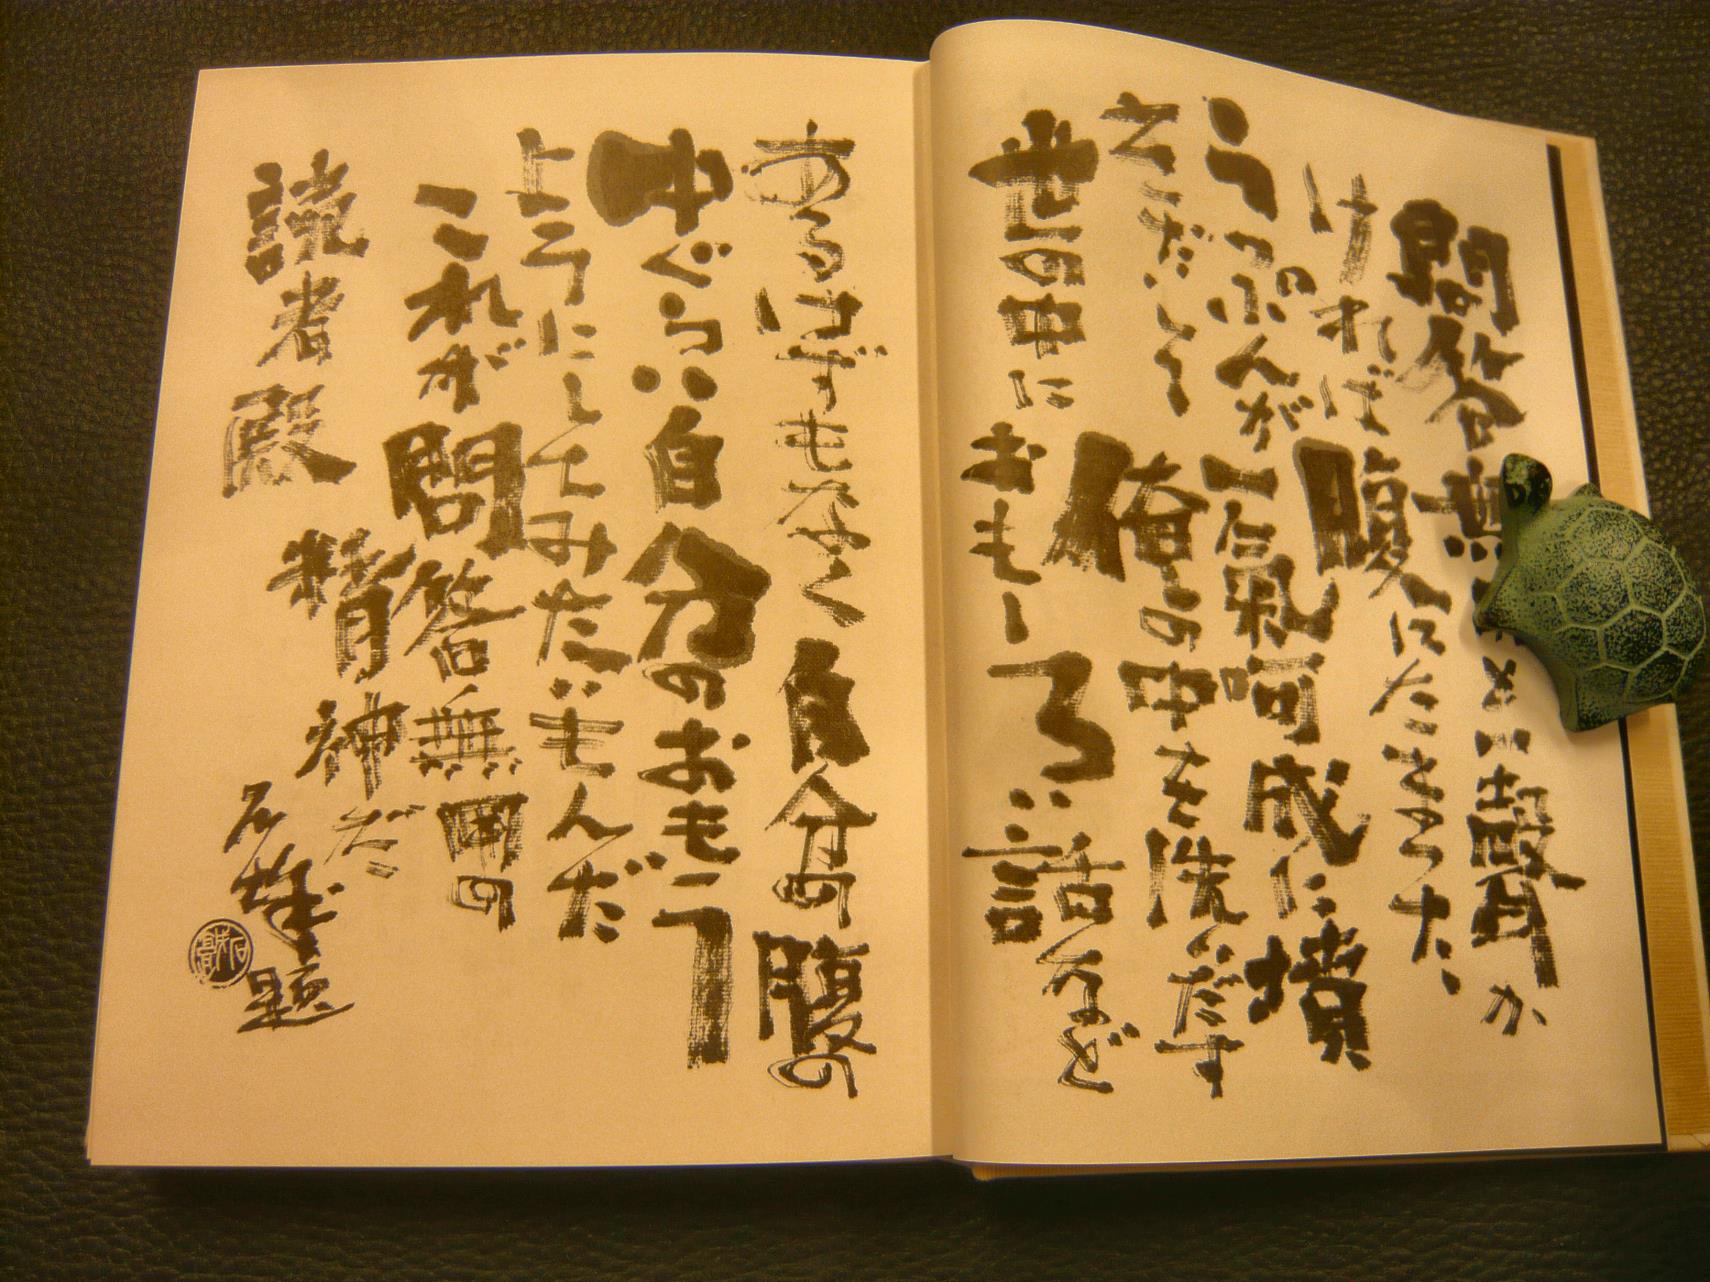 問答無 と 聲か
ければ腹にたまった、
うっぷんが一氣呵成に墳
きだして俺の中を洗いだす
世の中におもしろい話など
あるはずもなく自分の腹の
中ぐらい自分のおもう
ようにしてみたいもんだ
これが問答無用の
精神だ
読者殿
題